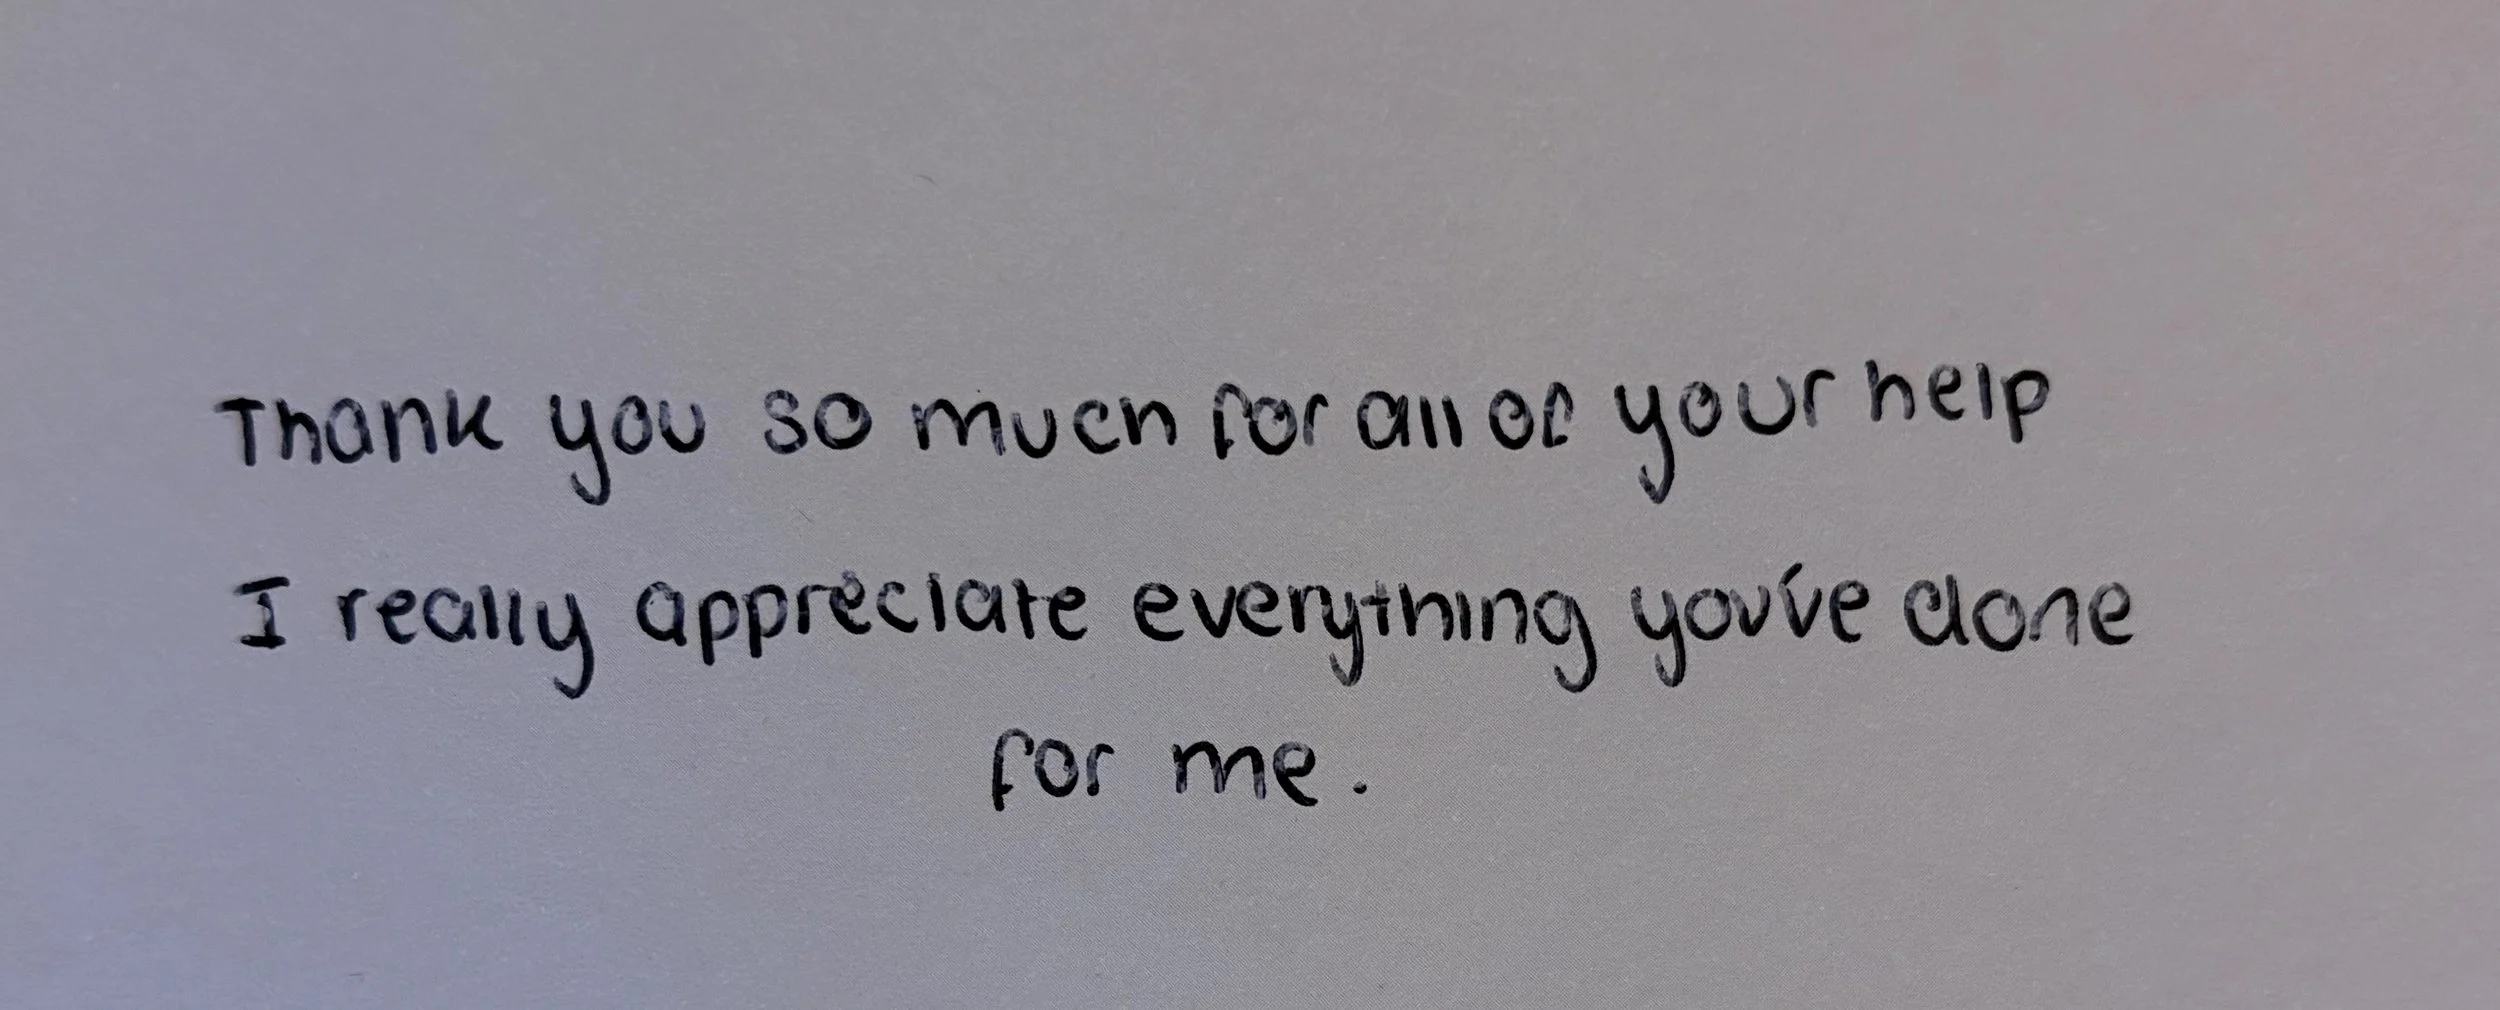 Thank you so much for all of your help
I really appreciate everything you've done
for me.